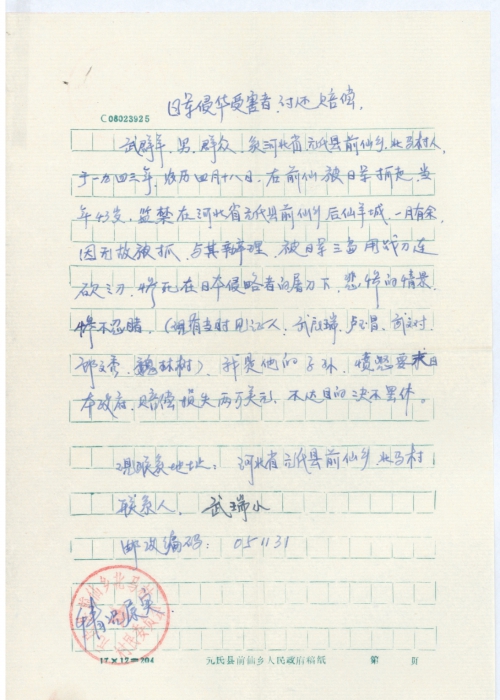 日军侵华受害者讨还赔偿,
C08023925
武群年,男,群众,系河北省元氏县前仙乡北马村人,
于一九四三年,农历四月十八日,在前仙被日军抓走,当
年43岁,监禁在河北省元氏县前仙乡后仙羊城,一月有余,
因无故被抓,与其辩理,被日军三岛用战刀连
砍三刀,惨死在日本侵略者的屠刀下,悲惨的情景
惨不忍睹,(现有当时见证人,
),我是他的子孙,愤怒要求日
本政府,赔偿损失两万美元,不达目的决不罢休。
现联系地址:河北省元氏县前仙乡北马村
联系人,武瑞小
邮政编码:051131
情况属实
17×12=204 元氏县前仙乡人民政府稿纸 第 页